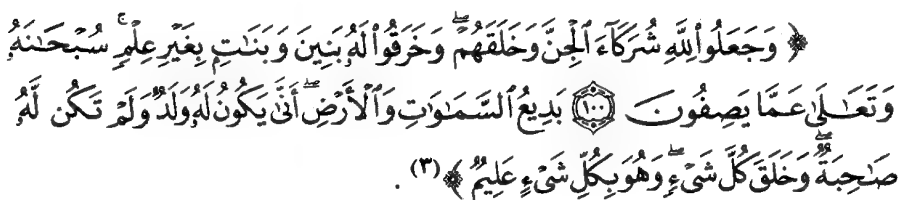 ﴿ وَجَعَلُوا۟ لِلَّهِ شُرَكَآءَ ٱلْجِنَّ وَخَلَقَهُمْ ۖ وَخَرَقُوا۟ لَهُۥ بَنِينَ وَبَنَٰتٍۭ بِغَيْرِ عِلْمٍ ۚ سُبْحَٰنَهُۥ
وَتَعَٰلَىٰ عَمَّا يَصِفُونَ ۝١٠٠ بَدِيعُ ٱلسَّمَٰوَٰتِ وَٱلْأَرْضِ ۖ أَنَّىٰ يَكُونُ لَهُۥ وَلَدٌ وَلَمْ تَكُن لَّهُۥ
صَٰحِبَةٌ ۖ وَخَلَقَ كُلَّ شَىْءٍ ۖ وَهُوَ بِكُلِّ شَىْءٍ عَلِيمٌ ﴾ (٣) .